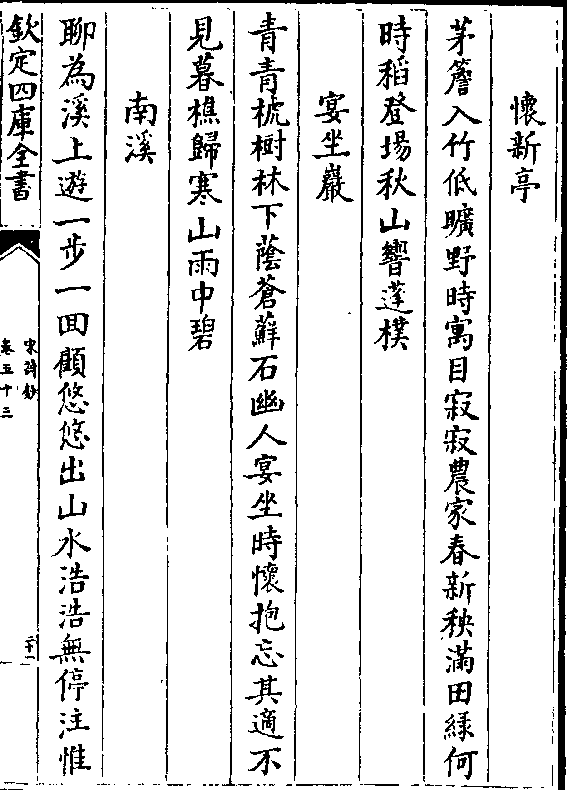 懷新亭
茅簷入竹低曠野時寓目寂寂農家春新秧滿田綠何
時稻登場秋山響蓬樸
宴坐巖
青青桄樹林下蔭蒼蘚石幽人宴坐時懷抱忘其適不
見暮樵歸寒山雨中碧
南溪
聊為溪上遊一步一回顧悠悠出山水浩浩無停注惟
欽定四庫全書
宋詩鈔
卷五十三